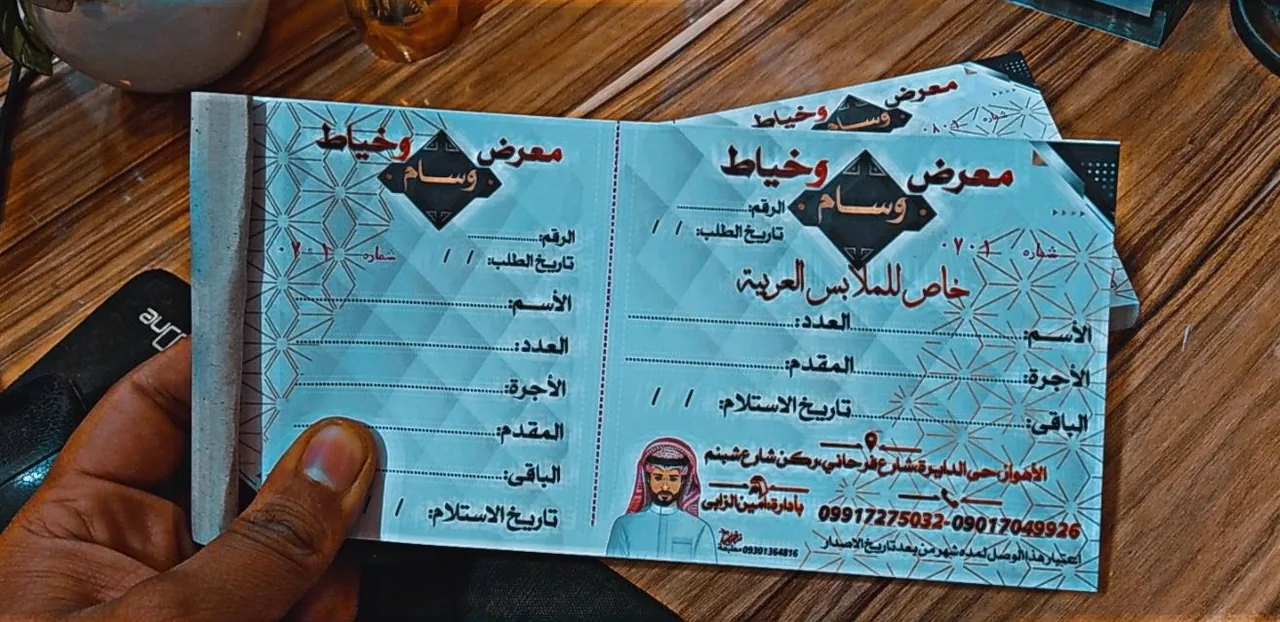 معرض وخياط
وسام
الرقم:
تاريخ الطلب: / /
شماره ۰۷۰۱
خاص للملابس العربية
الأسم: العدد:
الأجرة: المقدم:
الباقي: تاريخ الاستلام: / /
الأهواز، حي الدايرة، شارع فرحاني، ركن شارع شبنم
بأدارة: أمين الزابی
09917275032-09017049926
اعتبار هذا الوصل لمده شهر من بعد تاريخ الاصدار
09301364816 مطبعة
معرض وخياط
وسام
الرقم:
تاريخ الطلب: / /
شماره ۰۷۰۱
الأسم:
العدد:
الأجرة:
المقدم:
الباقي:
تاريخ الاستلام: /
معرض وخياط
وسام
شماره
One